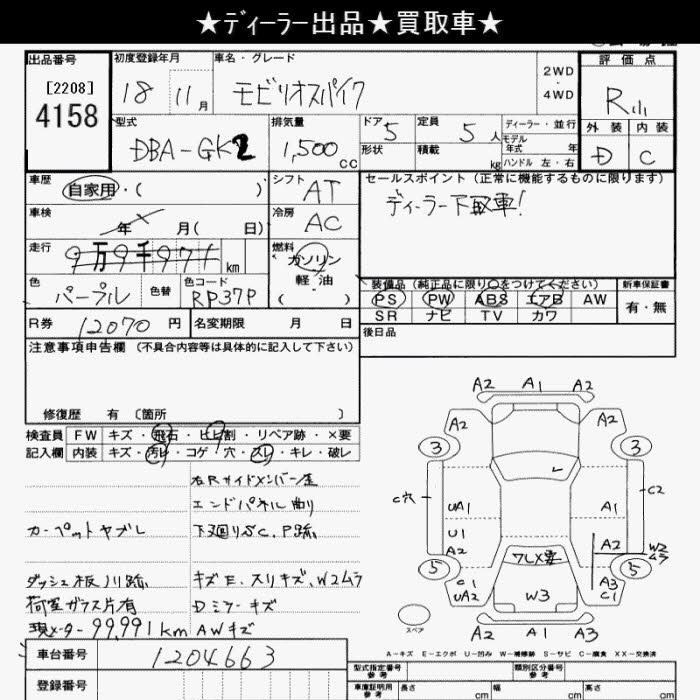 ★ディーラー出品★買取車★
出品番号
[2208]
4158
初度登録年月
18 11月
車名・グレード
モビリオスパイク
2WD
・
4WD
評価点
R小
外装 内装
D C
型式
DBA-GK2
排気量
1,500cc
ドア 5
形状
定員 5人
積載 kg
ディーラー・並行
モデル年式 年
ハンドル 左・右
車歴
自家用・( )
シフト AT
セールスポイント (正常に機能するものに限ります)
ディーラー下取車!
車検 年 月( 日)
冷房 AC
走行 9万9千971 km
燃料
ガソリン
軽油
( )
色 パープル
色替
色コード RP37P
装備品 (純正品に限り○をつけてください)
PS PW ABS エアB AW
SR ナビ TV カワ
新車保証書
有・無
R券 12070円
名変期限 月 日
後日品
注意事項申告欄 (不具合内容等は具体的に記入して下さい)
修復歴 有 〔箇所 〕
検査員記入欄
FW キズ・飛石・ヒビ割・リペア跡・×要
内装 キズ・汚レ・コゲ・穴・スレ・キレ・破レ
右Rサイドメンバー凹
エンドパネル曲り
カーペットヤブレ
下廻りSC.P跡
ダッシュ板ノリ跡
キズE、スリキズ、W2ムラ
荷室ガラス片有
Dミラーキズ
現メーター99,991km AWキズ
A2 A1 A2
A2 A2
3 3
C穴 C2
UA1 A1
U1
A2 A2
W2ムラ
5 5
ワレX要
C1 A3
UA2 C1
W3
スペア
A2 A1 A3
A-キズ E-エクボ U-凹み W-補修跡 S-サビ C-腐食 XX-交換済
車台番号 1204663
登録番号
型式指定番号 参考
類別区分番号 参考
車庫証明用 参考
長さ cm 幅 cm 高さ cm